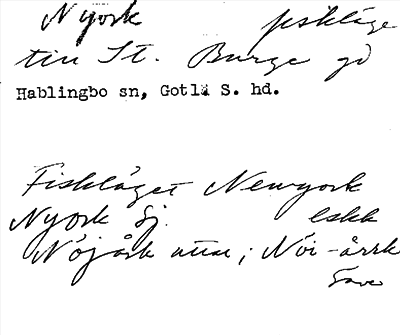 Nyork fiskläge
till St. Burge gd
Hablingbo sn, Gotl. S. hd.
Fiskläget Newyork
Nyork Sj. eskk
Nöjårk uttal; Nöi-årrk
Save